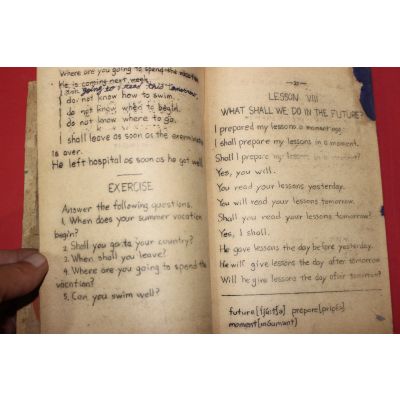 Where are you going to spend the vacation
He is coming next week.
I am going to read this
I do not know how to swim.
I do not know when to begin.
I do not know where to go.
I shall leave as soon as the
is over.
He left hospital as soon as he got well
EXERCISE
Answer the following questions.
1. When does your summer vocation
begin?
2. Shall you go to your country?
3. When shall you leave?
4. Where are you going to spend the
vacation?
5. Can you swim well?
LESSON VIII
WHAT SHALL WE DO IN THE FUTURE?
I prepared my lessons a moment ago.
I shall prepare my lessons in a moment.
Shall I prepare my lessons in a moment?
Yes, you will.
You read your lessons yesterday.
You will read your lessons tomorrow.
Shall you read your lessons tomorrow?
Yes, I shall.
He gave lessons the day before yesterday.
He will give lessons the day after tomorrow
Will he give lessons the day after tomorrow?
future prepare
moment